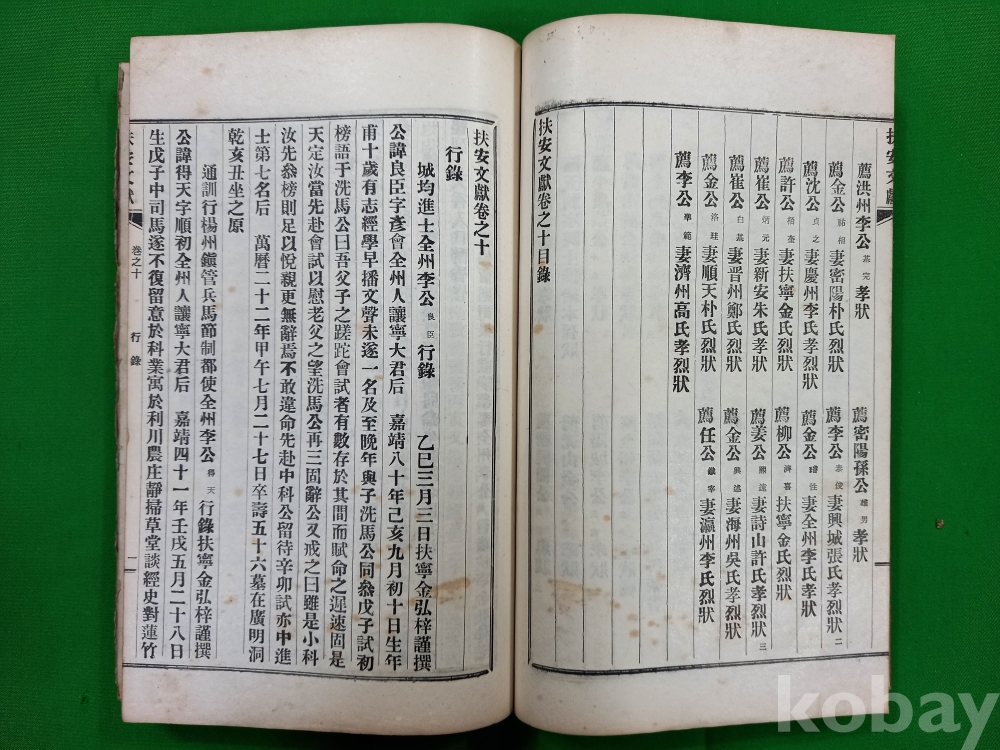 扶安文獻
薦洪州李公 孝狀 薦密陽孫公 孝狀
薦金公 妻密陽朴氏烈狀 薦李公 妻興城張氏孝烈狀 二
薦沈公 貞之 妻慶州李氏孝狀 薦金公 妻全州李氏孝狀
薦許公 妻扶寧金氏烈狀 薦柳公 濟喜 扶寧金氏烈狀
薦崔公 炳元 妻新安朱氏孝狀 薦姜公 妻詩山許氏孝烈狀 三
薦崔公 白基 妻晋州鄭氏孝狀 薦金公 妻海州吳氏孝烈狀
薦金公 洛珪 妻順天朴氏烈狀 薦任公 妻瀛州李氏烈狀
薦李公 準範 妻濟州高氏孝烈狀
扶安文獻卷之十目錄
扶安文獻卷之十
行錄
城均進士全州李公 良臣 行錄 乙巳三月三日扶寧金弘梓謹撰
公諱良臣字彥會全州人讓寧大君后 嘉靖八十年己亥九月初十日生年
甫十歲有志經學早播文聲未遂一名及至晚年與子洗馬公同叅戊子試初
榜語于洗馬公曰吾父子之蹉跎會試者有數存於其間而賦命之遲速固是
天定汝當先赴會試以慰老父之望洗馬公再三固辭公又戒之曰雖是小科
汝先叅榜則足以悅親更無辭焉不敢違命先赴中科公留待辛卯試亦中進
士第七名后 萬曆二十二年甲午七月二十七日卒壽五十六墓在廣明洞
乾亥丑坐之原
通訓行楊州鎭管兵馬節制都使全州李公 得天 行錄扶寧金弘梓謹撰
公諱得天字順初全州人讓寧大君后 嘉靖四十一年壬戌五月二十八日
生戊子中司馬遂不復留意於科業寓於利川農庄靜掃草堂談經史對蓮竹
扶安文獻 卷之十 行錄 一
kobay